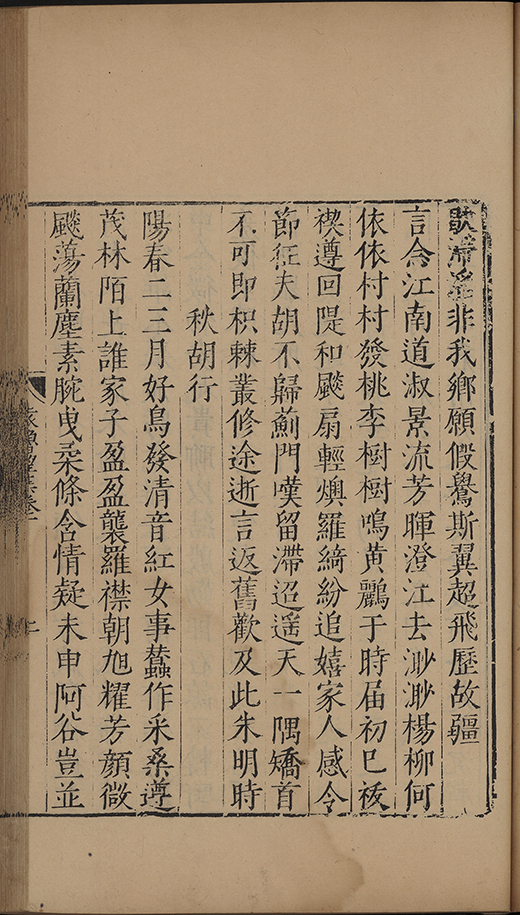 歇濟非我鄉願假鸒斯翼超飛歷故疆
言念江南道淑景流芳暉澄江去渺渺楊柳何
依依村村發桃李樹樹鳴黃鸝于時届初巳祓
禊遵回隄和飇扇輕燠羅綺紛追嬉家人感令
節征夫胡不歸薊門嘆留滯迢遥天一隅矯首
不可即枳棘叢修途逝言返舊歡及此朱明時
秋胡行
陽春二三月好鳥發清音紅女事蠶作采桑遵
茂林陌上誰家子盈盈襲羅襟朝旭耀芳顏微
飇蕩蘭塵素腕曳柔條含情疑未申阿谷豈並